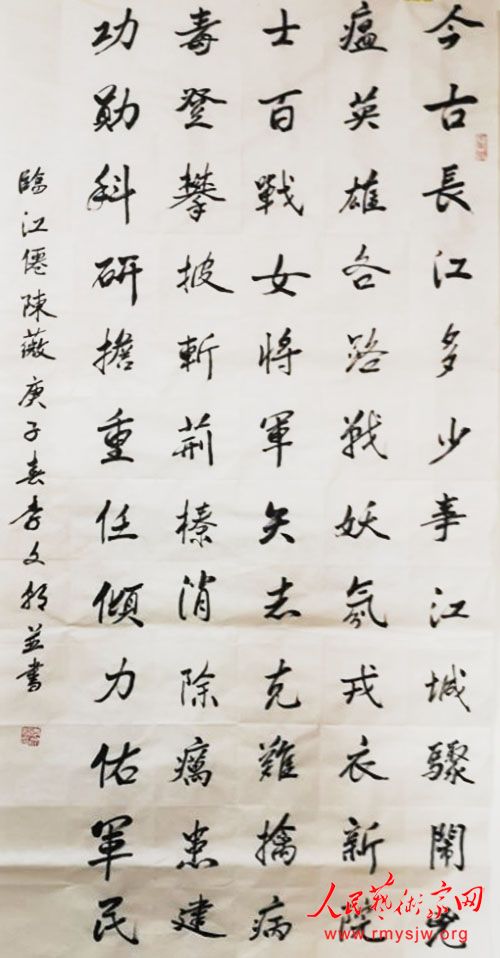 今古長江多少事江城驟鬧兇
瘟英雄各路戰妖氛戎衣新院
士百戰女將軍矢志克難擒病
毒登攀披斬荊榛消除癘患建
功勛科研擔重任傾力佑軍民
臨江僊陳薇庚子春李文朝並書
人民藝術家网
www.rmysjw.org